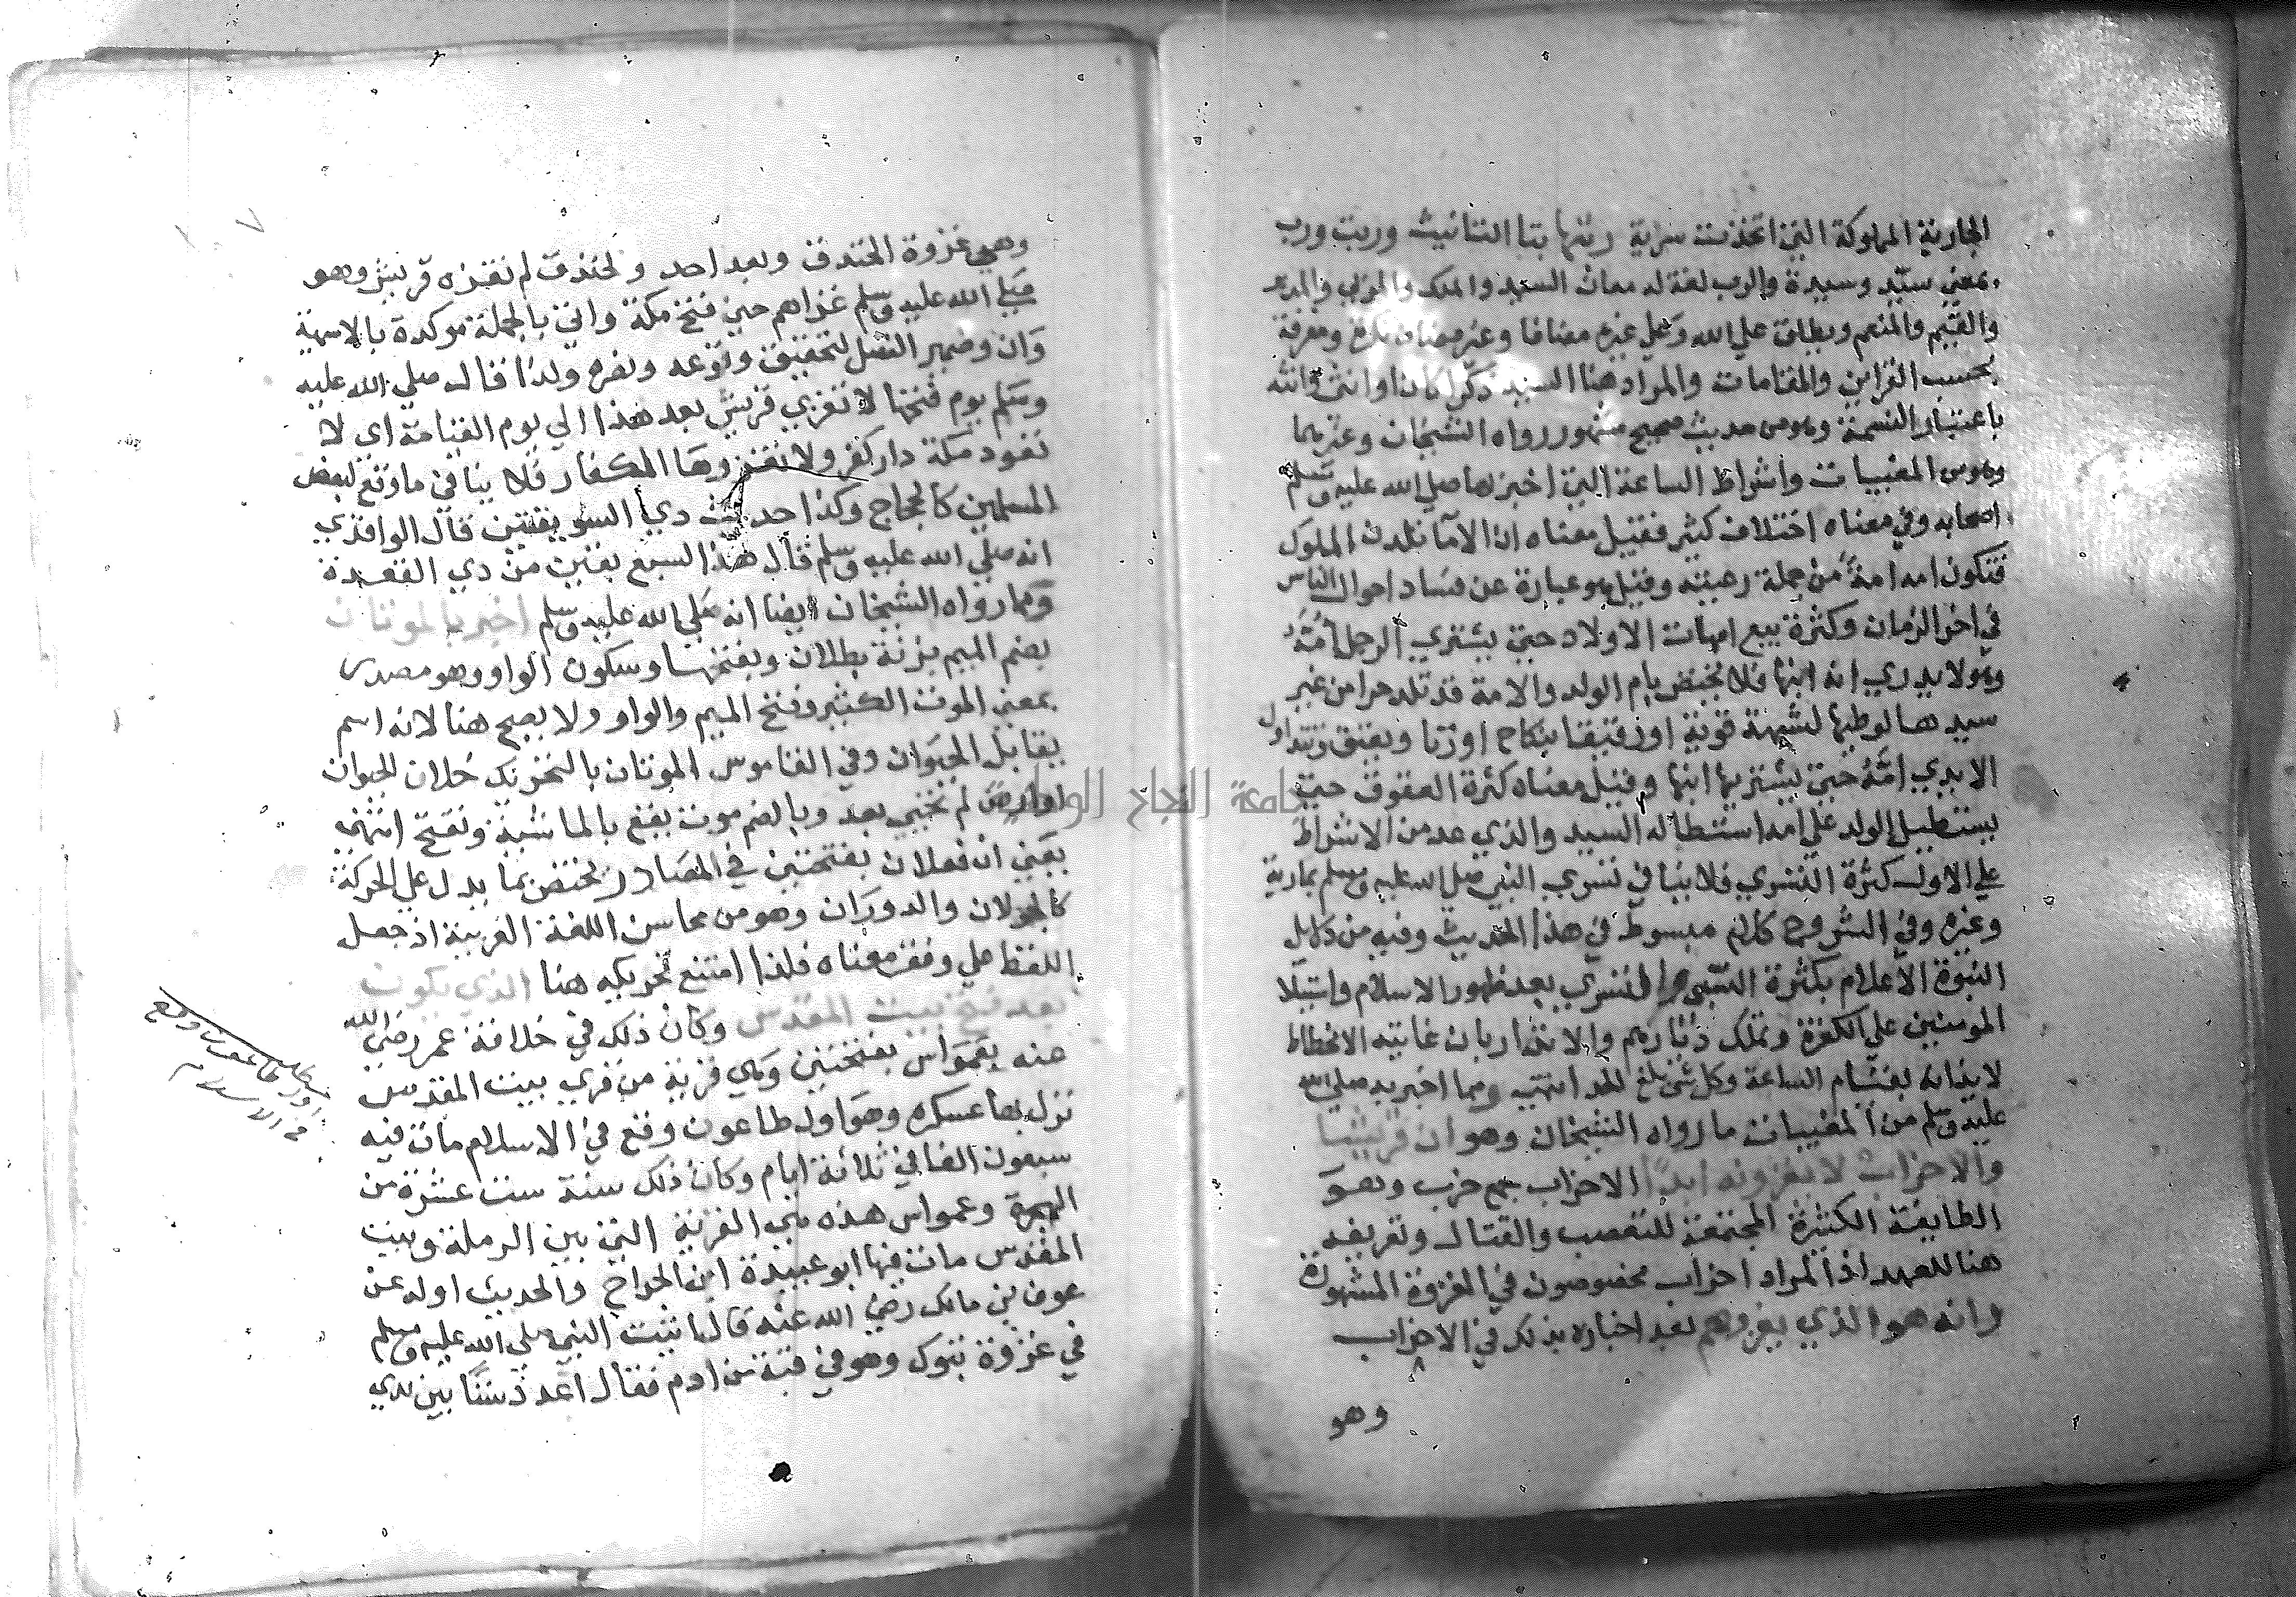 الجارية المملوكة التي اتخذت سراية ربتها بتا التانيث وربت ورب
بمعني سيد وسيدة والرب لغة له معان السيد والملك والمربي والمدبر
والقيم والمنعم ويطلق علي الله وعلي غيره مضافا وغير مضاف نكرة ومعرفة
بحسب القراين والمقامات والمراد هنا السيد ذكرا كان او انثي وانثه
باعتبار النسمة وهو من حديث صحيح مشهور رواه الشيخان وغيرهما
وهو من المغيبات واشراط الساعة التي اخبر بها صلي الله عليه وسلم
اصحابه وفي معناه اختلاف كثير فقيل معناه ان الاما تلدن الملوك
فتكون امه امة من جملة رعيته وقيل هو عبارة عن فساد احوال الناس
في اخر الزمان وكثرة بيع امهات الاولاد حتي يشتري الرجل امه
وهو لا يدري انه ابنها فلا يختص بام الولد والامة قد تلد حرا من غير
سيدها لوطيها لشبهة قوية او رقيقا بنكاح او زنا ويعتق وتتداول
الايدي امه حتي يشتريها ابنها وقيل معناه كثرة العقوق حتي
يستطيل الولد علي امه استطالة السيد والذي عد من الاشراط
علي الاول كثرة التسري فلا ينافي تسري النبي صلي الله عليه وسلم بمارية
وغيره وفي الشروح كلام مبسوط في هذا الحديث وفيه من دلايل
النبوة الاعلام بكثرة السبي والتسري بعد ظهور الاسلام واستيلا
المومنين علي الكفرة وتملك ديارهم والانذار بان غايته الانحطاط
لايذانه بقيام الساعة وكل شي بلغ الحد انتهي ومما اخبر به صلي الله
عليه وسلم من المغيبات ما رواه الشيخان وهو ان قريشا
والاحزاب لا يغزونه ابدا الاحزاب جمع حزب وهو
الطايفة الكثيرة المجتمعة للتعصب والقتال وتعريفه
هنا للعهد اذ المراد احزاب مخصوصون في الغزوة المشهورة
وانه هو الذي يغزوهم بعد اخباره بذلك في الاحزاب
وهو
وهي غزوة الخندق وبعد احد والخندق لم تغزه قريش وهو
صلي الله عليه وسلم غزاهم حين فتح مكة واتي بالجملة موكدة بالاسمية
وان وضمير الفصل لتحقيق وقوعه ونفره ولذا قال صلي الله عليه
وسلم يوم فتحها لا تغزي قريش بعد هذا الي يوم القيامة اي لا
تعود مكة دار كفر ولا تغزوها الكفار فلا ينافي ما وقع لبعض
المسلمين كالحجاج وكذا حديث ذي السويقتين قال الواقدي
انه صلي الله عليه وسلم قال هذا لسبع بقيت من ذي القعدة
ومما رواه الشيخان ايضا انه صلي الله عليه وسلم اخبر بالموتان
بضم الميم بزنة بطلان وبفتحها وسكون الواو وهو مصدر
بمعني الموت الكثير وفتح الميم والواو ولا يصح هنا لانه اسم
يقابل الحيوان وفي القاموس الموتان بالتحريك خلاف الحيوان
او ارض لم تحيي بعد وبالضم موت يقع بالماشية وتفتح انتهي
يعني ان فعلان بفتحتين في المصادر يختص بما يدل علي الحركة
كالجولان والدوران وهو من محاسن اللغة العربية اذ جعل
اللفظ علي وفق معناه فلذا امتنع تحريكه هنا الذي يكون
بعد فتح بيت المقدس وكان ذلك في خلافة عمر رضي الله
عنه بعمواس بفتحتين وهي قرية من قري بيت المقدس
نزل بها عسكره وهو اول طاعون وقع في الاسلام مات فيه
سبعون الفا في ثلاثة ايام وكان ذلك سنة ست عشرة من
الهجرة وعمواس هذه هي القرية التي بين الرملة وبيت
المقدس مات فيها ابو عبيدة ابن الجراح والحديث اوله عن
عوف بن مالك رضي الله عنه قال اتيت النبي صلي الله عليه وسلم
في غزوة تبوك وهو في قبة من ادم فقال اعدد ستا بين يدي
اول طاعون وقع
في الاسلام
جامعة النجاح الوطنية